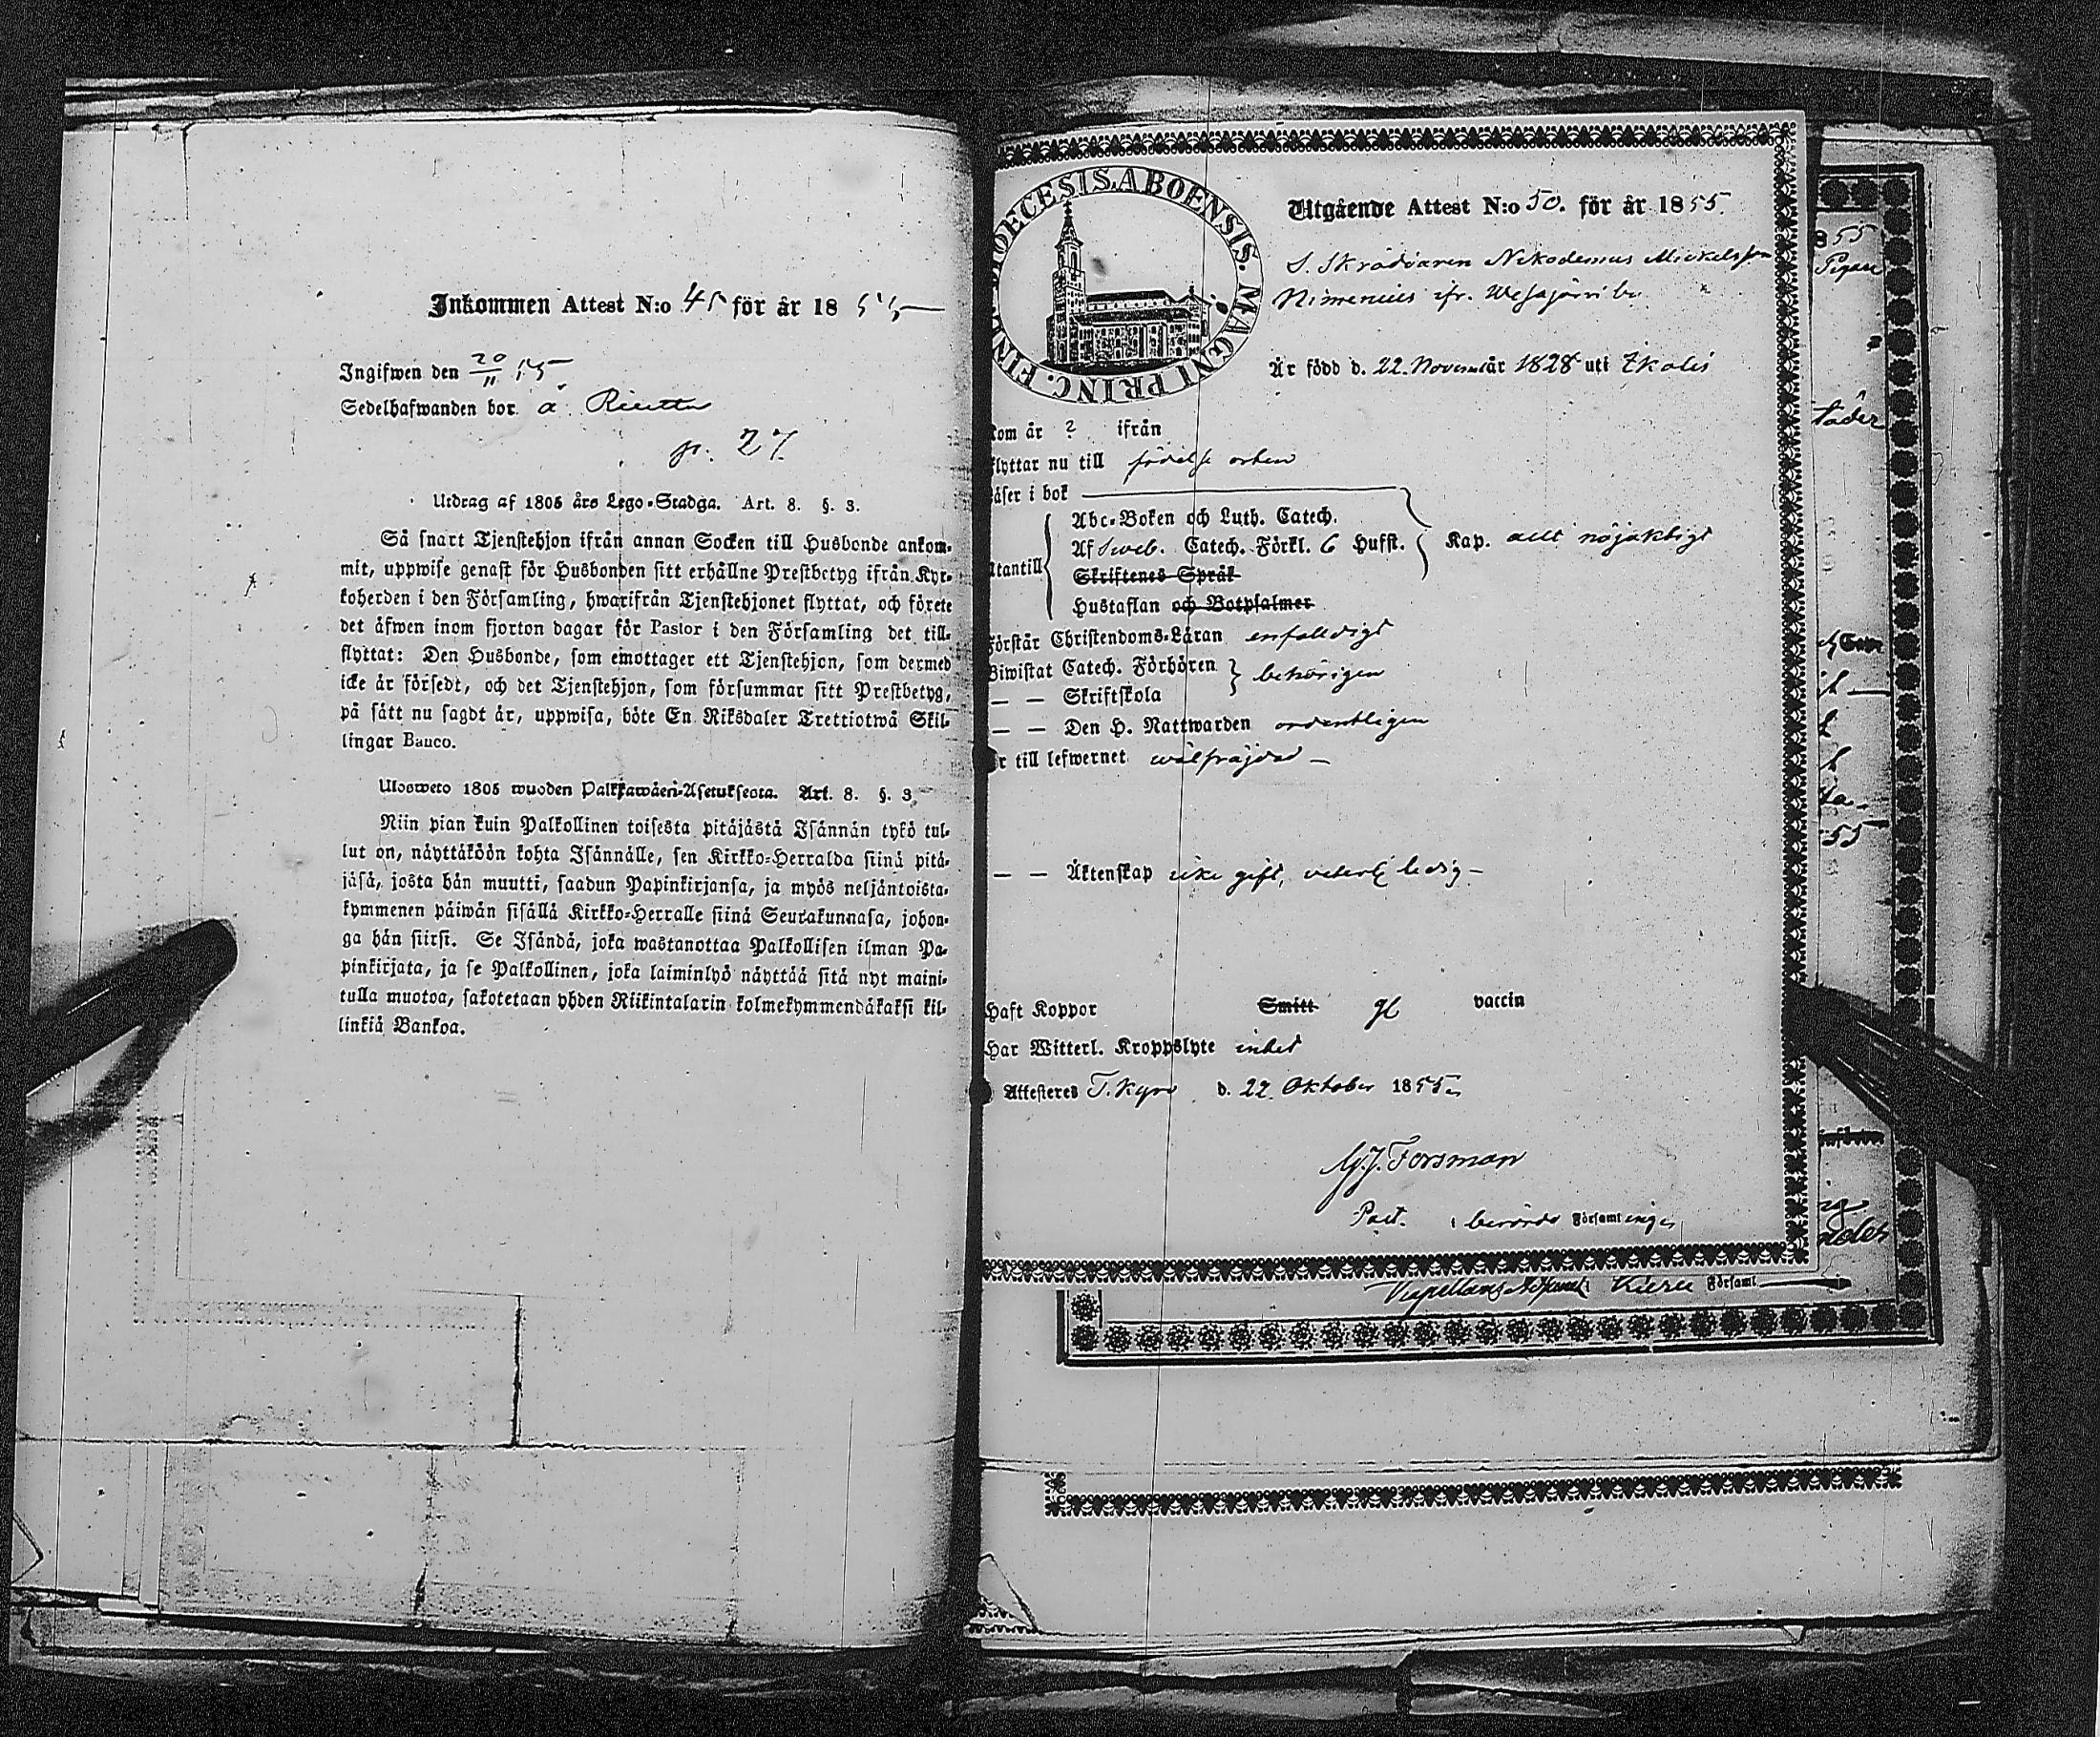 Inkommen Attest N:o 45 för år 1855
Ingifwen den 20/11 55
Sedelhafwanden bor å
p. 27.
Utdrag af 1805 års Lego-Stadga. Art. 8. §. 3.
Så snart Tjenstehjon ifrån annan Socken till Husbonde ankom-
mit, uppwise genast för Husbonden sitt erhållne Prestbetyg ifrån Kyr-
koherden i den Församling, hwarifrån Tjenstehjonet flyttat, och förete
det äfwen inom fjorton dagar för Pastor i den Församling det till-
flyttat: Den Husbonde, som emottager ett Tjenstehjon, som dermed
icke är försedt, och det Tjenstehjon, som försummar sitt Prestbetyg,
på sätt nu sagdt är, uppwisa, böte En Riksdaler Trettiotwå Skil-
lingar Banco.
Ulosweto 1805 wuoden Palkkawäen-Asetuksesta. Art. 8. §. 3
Niin pian kuin Palkollinen toisesta pitäjästä Isännän tykö tul-
lut on, näyttäköön kohta Isännälle, sen Kirkko-Herralda siinä pitä-
jäsä, josta hän muutti, saadun Papinkirjansa, ja myös neljäntoista-
kymmenen päiwän sisällä Kirkko-Herralle siinä Seurakunnasa, johon-
ga hän siirsi. Se Isändä, joka wastanottaa Palkollisen ilman Pa-
pinkirjata, ja se Palkollinen, joka laiminlyö näyttää sitä nyt maini-
tulla muotoa, sakotetaan yhden Riikintalarin kolmekymmendäkaksi kil-
linkiä Bankoa.
DIOECESIS ABOENSIS. MAGNI PRINC. FINL.
Utgående Attest N:o 50. för år 1855.
S. Skräddaren Nikodemus Mickelsson
Nimenius ifr. Wesajärvi by
Är född d. 22. November år 1828 uti Ikalis
Kom år ? ifrån
Flyttar nu till födelse orten
Läser i bok
Abc-Boken och Luth. Catech.
Af Sweb. Catech. Förkl. 6 Hufst.
Kap. allt nöjaktigt
Utantill
Skriftenes Språk
Hustaflan och Botpsalmer
Förstår Christendoms-Läran enfaldigt
Biwistat Catech. Förhören
behörigen
— — Skriftskola
— — Den H. Nattwarden ordentligen
Är till lefwernet wälfräjdad —
— — Äktenskap icke gift, veterl. ledig —
Haft Koppor Smitt gl vaccin
Har Witterl. Kroppslyte intet
Attesteres T. Kyro d. 22 Oktober 1855.
G. J. Forsman
Past. i berörde Församlingen
Församl
855
Pigan
55